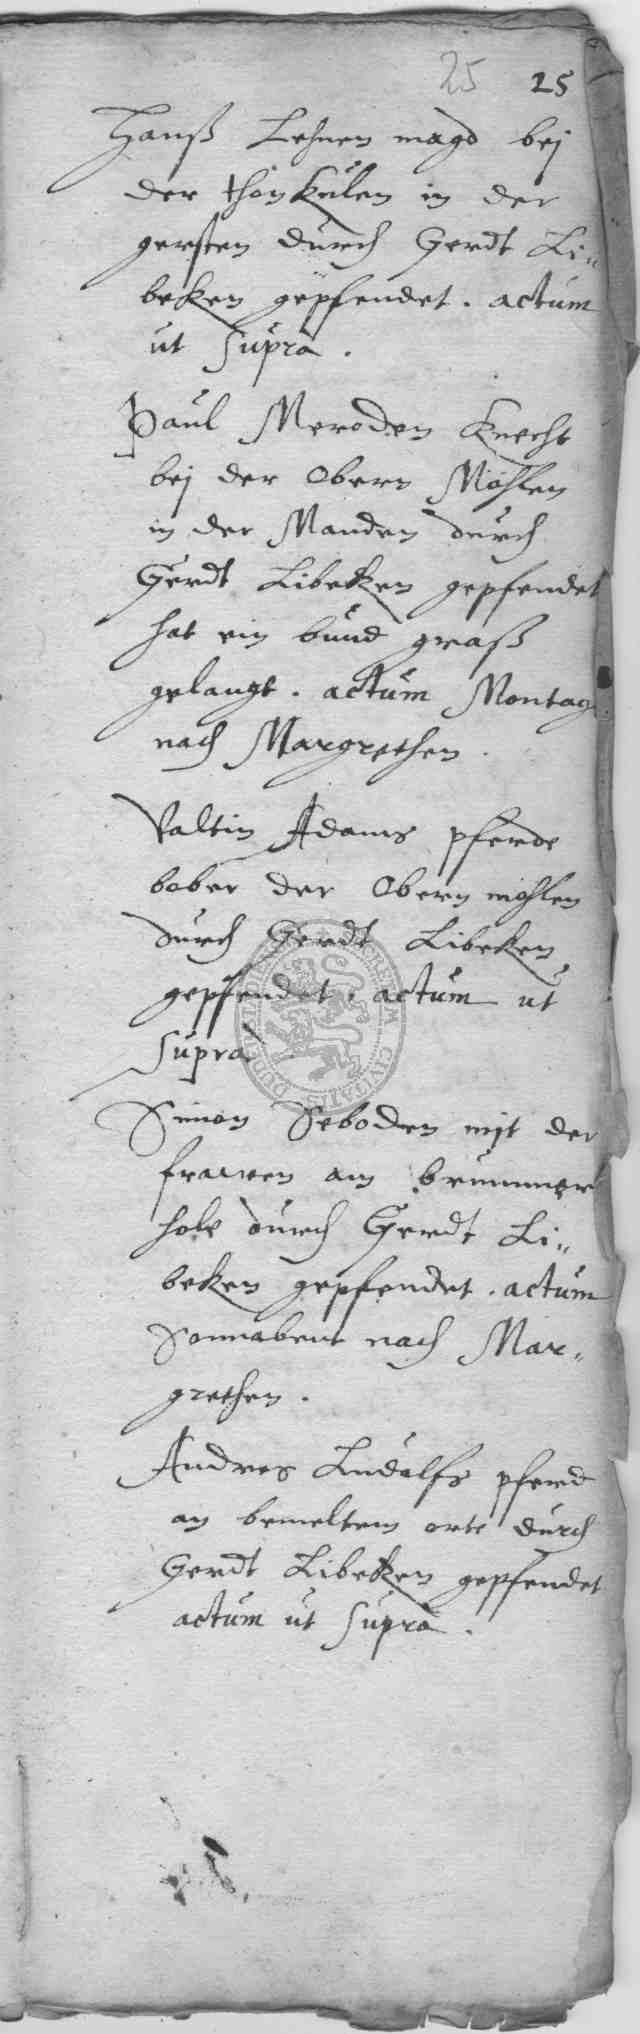 25 25
Hanß Lehnen magd bej
der thonkulen in der
gersten durch Gerdt Li„
beken gepfendet. actum
ut supra.
Paul Meroden Knecht
bej der Obern Mohlen
in der Manden durch
Gerdt Libeken gepfendet
hat ein bund graß
gelangt. actum Montag
nach Margrethen.
Valtin Adams pferde
bober der Obern mohlen
durch Gerdt Libeken
gepfendet. actum ut
supra
Simon Seboden mit der
frawen am brummer
hole durch Gerdt Li„
beken gepfendet. actum
Sonnabent nach Mar„
grethen.
Andres Ludolfs pferd
an bemeltem orte durch
Gerdt Libeken gepfendet
actum ut supra.